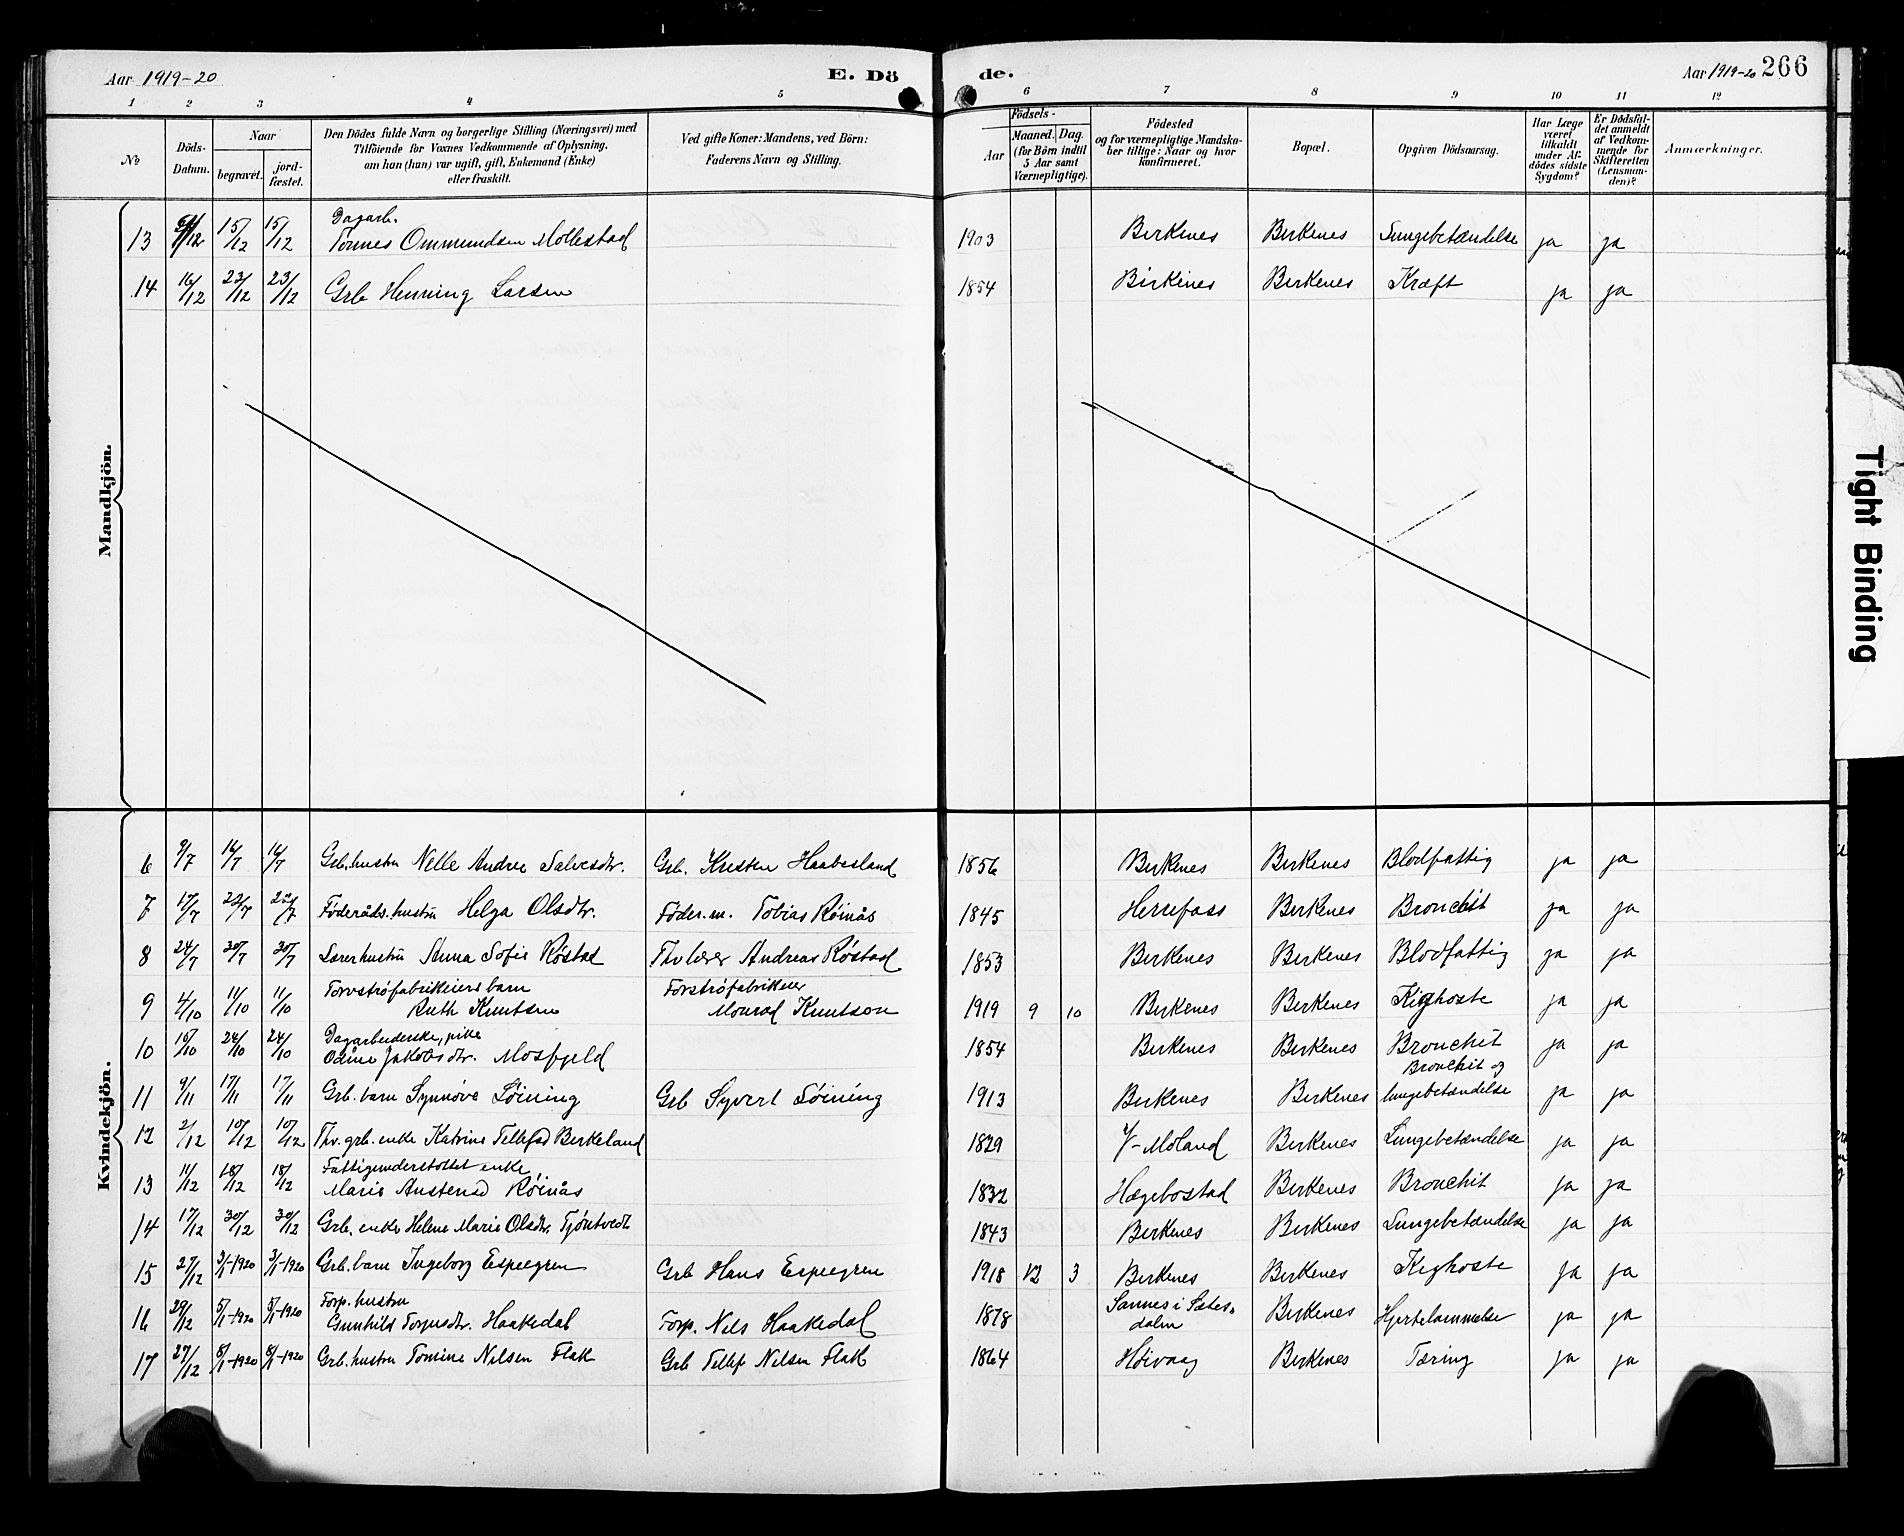 Aar 1919-20
E. Dö
de.
Aar 1919-20 266
1 2 3 4 5 6 7 8 9 10 11 12
No
Döds-Datum.
Naar
begravet.
jord-fæstet.
Den Dödes fulde Navn og borgerlige Stilling (Næringsvei) med
Tilföiende for Voxnes Vedkommende af Oplysning,
om han (hun) var ugift, gift, Enkemand (Enke)
eller fraskilt.
Ved gifte Koner: Mandens, ved Börn:
Faderens Navn og Stilling.
Födsels-
Aar
Maaned. Dag.
(for Börn indtil
5 Aar samt
Værnepligtige).
Födested
og for værnepligtige Mandska-
ber tillige: Naar og hvor
konfirmeret.
Bopæl.
Opgiven Dödsaarsag.
Har Læge
været
tilkaldt
under Af-
dödes sidste
Sygdom?
Er Dödsfal-
det anmeldt
af Vedkom-
mende for
Skifteretten
(Lensman-
den)?
Anmærkninger.
Mandkjön.
Dagarb.
13 /12 15/12 15/12 Tønnes Ommundsen Mollestad 1903 Birkenes Birkenes Lungebetændelse ja ja
14 16/12 23/12 23/12 Grb Henning Larsen 1854 Birkenes Birkenes Kræft ja ja
Kvindekjön.
6 9/7 16/7 16/7 Grb. hustru Nelle Andrea Salvesdtr. Grb. Kristen Haabesland 1856 Birkenes Birkenes Blodfattig ja ja
7 17/7 22/7 22/7 Føderåds. hustru Helga Olsdtr. Føder. m. Tobias Røinås 1845 Herrefoss Birkenes Bronchit ja ja
8 24/7 30/7 30/7 Lærerhustru Anna Sofie Røstad Fhv lærer Andreas Røstad 1853 Birkenes Birkenes Blodfattig ja ja
Torvstrøfabrikeiers barn Torvstrøfabrikeier
9 4/10 11/10 11/10 Ruth Knutsen Monrad Knutson 1919 9 10 Birkenes Birkenes Kighoste ja ja
Dagarbeiderske, pike
10 15/10 24/10 24/10 Odine Jakobsdtr. Mosfjeld 1854 Birkenes Birkenes Bronchit ja ja
Bronchit og
11 9/11 17/11 17/11 Grb. barn Synnøve Løining Grb Syvert Løining 1913 Birkenes Birkenes lungebetændelse ja ja
12 2/12 10/12 10/12 Fhv. grb. enke Katrine Tellefsd Birkeland 1829 V-Moland Birkenes Lungebetændelse ja ja
Fattigunderstøttet enke
13 11/12 18/12 18/12 Marie Austensd Røinås 1832 Hægebostad Birkenes Bronchit ja ja
14 17/12 30/12 30/12 Grb. enke Helene Marie Olsdtr. Tjøstvedt 1843 Birkenes Birkenes Lungebetændelse ja ja
15 27/12 3/1-1920 3/1-1920 Grb. barn Ingeborg Espegren Grb Hans Espegren 1918 12 3 Birkenes Birkenes Kighoste ja ja
Forp. hustru Sannes i Sætes-
16 29/12 5/1-1920 5/1-1920 Gunhild Torjusdtr. Haakedal Forp. Nils Haakedal 1878 dalen Birkenes Hjertelammelse ja ja
17 27/12 8/1-1920 8/1-1920 Grb. hustru Tomine Nilsen Flak Grb Tellef Nilsen Flak 1864 Høivaag Birkenes Tæring ja ja
Tight Binding